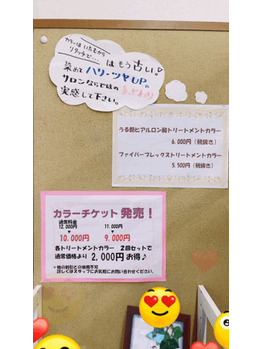 カラーはいたむから
リタッチで…
はもう古い!
染めてハリ・ツヤUPの
サロンならではの
実感して下さい。
うる髪ヒアルロン酸トリートメントカラー
6,000円(税抜き)
ファイバーフレックストリートメントカラー
5,500円(税抜き)
カラーチケット発売!
通常料金
12,000円 11,000円
10,000円 9,000円
各トリートメントカラー 2回セットで
通常価格より2,000円お得♪
*他の割引との併用不可
詳しくはスタッフにお気軽にお問い合わせください。